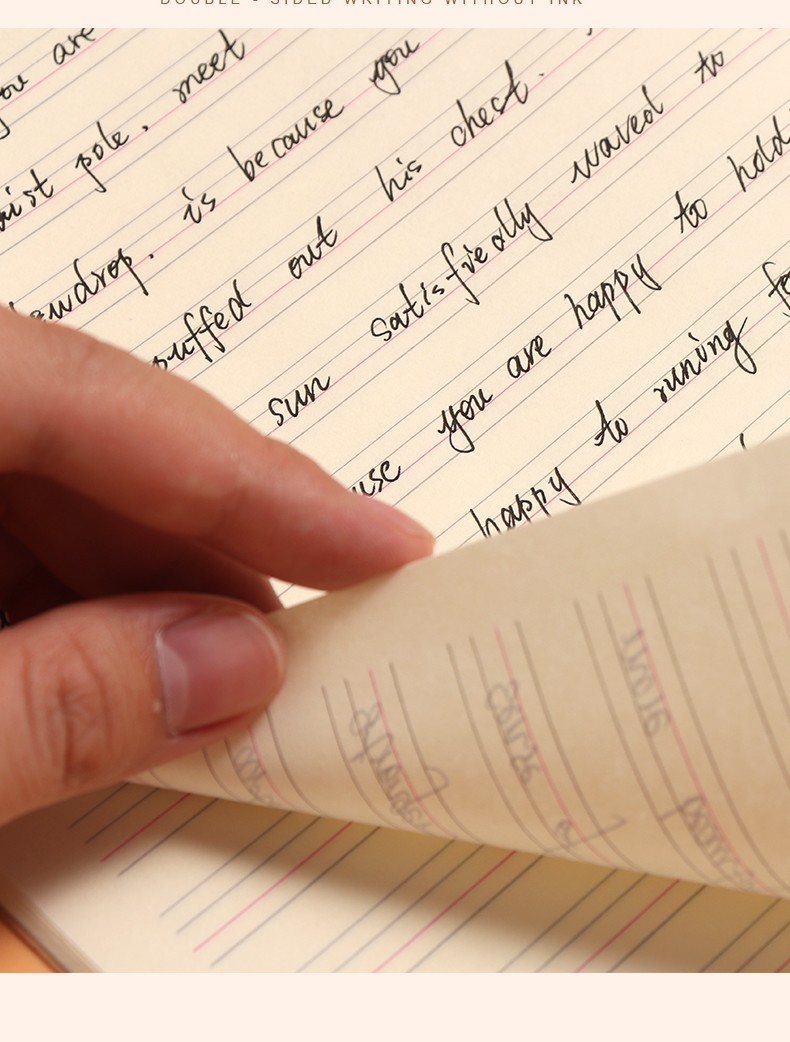 DOUBLE - SIDED WRITING WITHOUT INK
you are
pole. meet
dewdrop. is because you
puffed out his chest.
sun satisfiedly waved to
use you are happy to hold
happy to runing